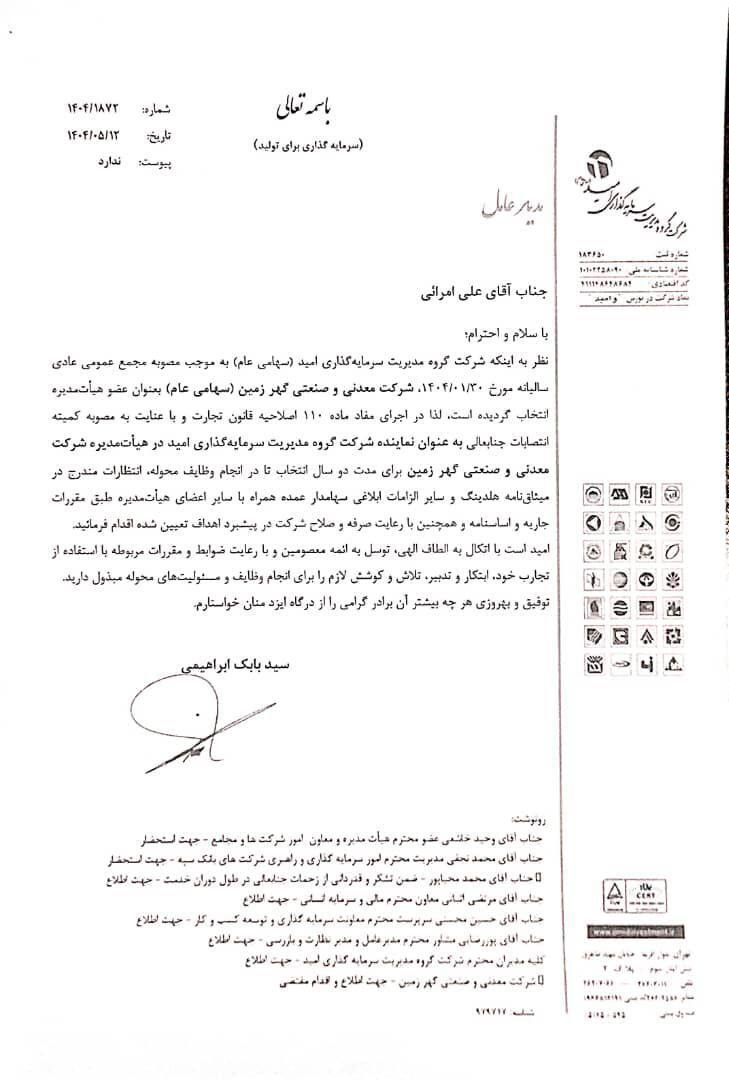 باسمه تعالی
(سرمایه گذاری برای تولید)
شماره: ۱۴۰۴/۱۸۷۲
تاریخ: ۱۴۰۴/۰۵/۱۲
پیوست: ندارد
شرکت گروه مدیریت سرمایه گذاری امید
شماره ثبت ۱۸۳۶۵۰
شماره شناسه ملی
کد اقتصادی:
نماد شرکت در بورس "وامید"
مدیر عامل
جناب آقای علی امرائی
با سلام و احترام؛
نظر به اینکه شرکت گروه مدیریت سرمایه‌گذاری امید (سهامی عام) به موجب مصوبه مجمع عمومی عادی
سالیانه مورخ ۱۴۰۴/۰۱/۳۰، شرکت معدنی و صنعتی گهر زمین (سهامی عام) بعنوان عضو هیأت‌مدیره
انتخاب گردیده است، لذا در اجرای مفاد ماده ۱۱۰ اصلاحیه قانون تجارت و با عنایت به مصوبه کمیته
انتصابات جنابعالی به عنوان نماینده شرکت گروه مدیریت سرمایه‌گذاری امید در هیأت‌مدیره شرکت
معدنی و صنعتی گهر زمین برای مدت دو سال انتخاب تا در انجام وظایف محوله، انتظارات مندرج در
میثاق‌نامه هلدینگ و سایر الزامات ابلاغی سهامدار عمده همراه با سایر اعضای هیأت‌مدیره طبق مقررات
جاریه و اساسنامه و همچنین با رعایت صرفه و صلاح شرکت در پیشبرد اهداف تعیین شده اقدام فرمائید.
امید است با اتکال به الطاف الهی، توسل به ائمه معصومین و با رعایت ضوابط و مقررات مربوطه با استفاده از
تجارب خود، ابتکار و تدبیر، تلاش و کوشش لازم را برای انجام وظایف و مسئولیت‌های محوله مبذول دارید.
توفیق و بهروزی هر چه بیشتر آن برادر گرامی را از درگاه ایزد منان خواستارم.
سید بابک ابراهیمی
رونوشت:
جناب آقای وحید خاشعی عضو محترم هیأت مدیره و معاون امور شرکت ها و مجامع - جهت استحضار
جناب آقای محمد نجفی مدیریت محترم امور سرمایه گذاری و راهبری شرکت های بانک سپه - جهت استحضار
جناب آقای محمد محیاپور - ضمن تشکر و قدردانی از زحمات جنابعالی در طول دوران خدمت - جهت اطلاع
جناب آقای مرتضی معاون محترم مالی و سرمایه انسانی - جهت اطلاع
جناب آقای حسین محسنی سرپرست محترم معاونت سرمایه گذاری و توسعه کسب و کار - جهت اطلاع
جناب آقای پوررضایی مشاور محترم مدیرعامل و مدیر نظارت و بازرسی - جهت اطلاع
کلیه مدیران محترم شرکت گروه مدیریت سرمایه گذاری امید - جهت اطلاع
شرکت معدنی و صنعتی گهر زمین - جهت اطلاع و اقدام مقتضی
شناسه: ۹۷۹۷۱۷
TUV
CERT
www.omidinvestment.ir
تهران، بلوار آفریقا